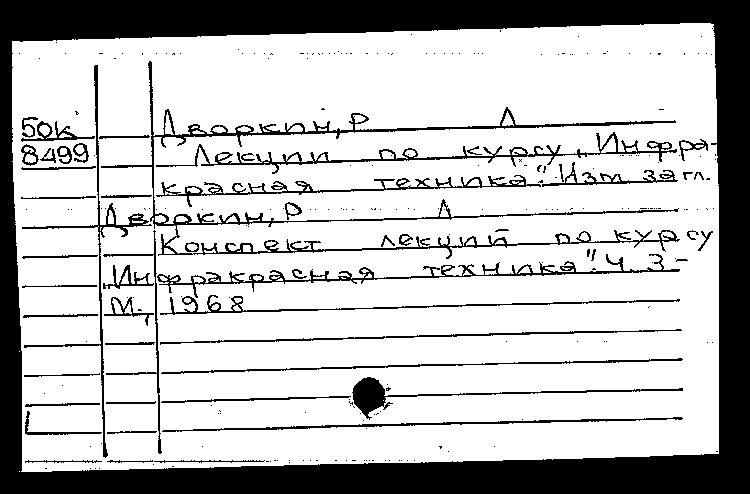 50к Дворкин, Р Л
8499 Лекции по курсу „Инфра-
красная техника". Изм. загл.
Дворкин, Р Л
Конспект лекций по курсу
„Инфракрасная техника". Ч. 3-
М., 1968